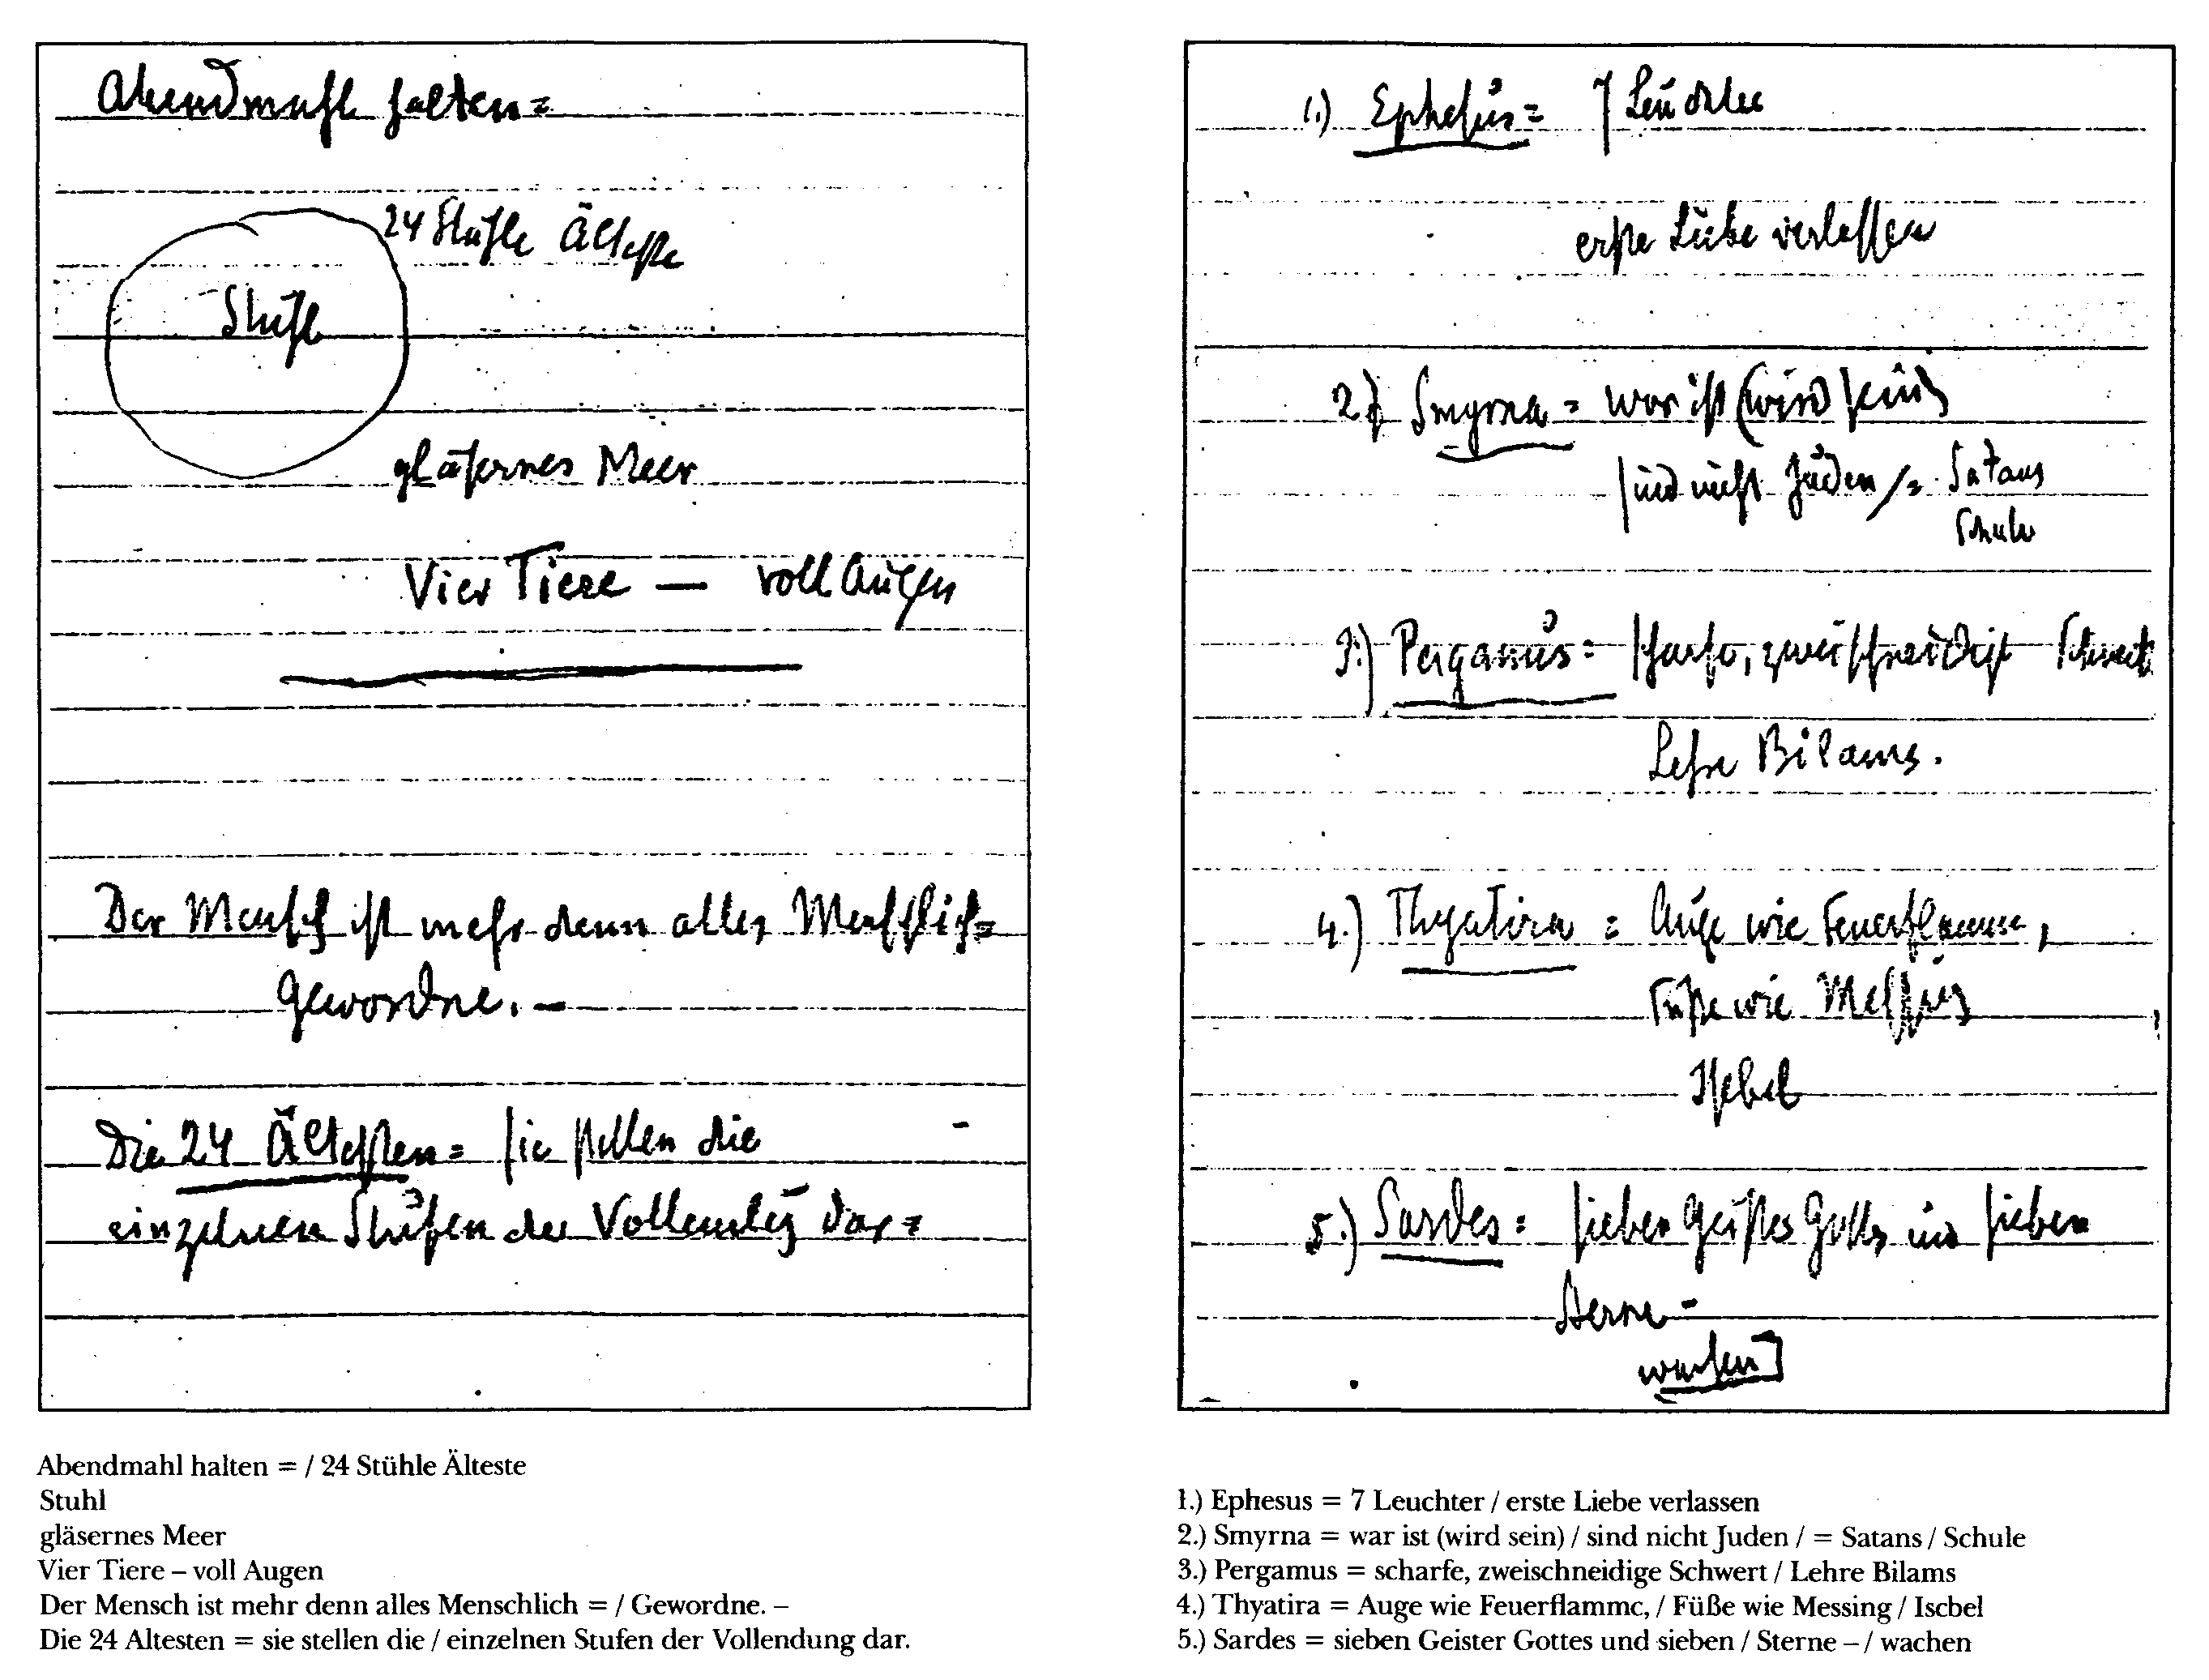 Abendmahl halten =
24 Stühle Älteste
Stuhl
gläsernes Meer
Vier Tiere — voll Augen
Der Mensch ist mehr denn alles Menschlich=
Gewordne. –
Die 24 Ältesten = sie stellen die
einzelnen Stufen der Vollendung dar =
1.) Ephesus = 7 Leuchter
erste Liebe verlassen
2.) Smyrna = war ist (wird sein)
sind nicht Juden / = Satans
Schule
3.) Pergamus = scharfe, zweischneidige Schwert
Lehre Bilams.
4.) Thyatira = Auge wie Feuerflamme,
Füße wie Messing
Isebel
5.) Sardes = sieben Geister Gottes und sieben
Sterne –
wachen
Abendmahl halten = / 24 Stühle Älteste
Stuhl
gläsernes Meer
Vier Tiere – voll Augen
Der Mensch ist mehr denn alles Menschlich = / Gewordne. –
Die 24 Altesten = sie stellen die / einzelnen Stufen der Vollendung dar.
1.) Ephesus = 7 Leuchter / erste Liebe verlassen
2.) Smyrna = war ist (wird sein) / sind nicht Juden / = Satans / Schule
3.) Pergamus = scharfe, zweischneidige Schwert / Lehre Bilams
4.) Thyatira = Auge wie Feuerflamme, / Füße wie Messing / Isebel
5.) Sardes = sieben Geister Gottes und sieben / Sterne – / wachen